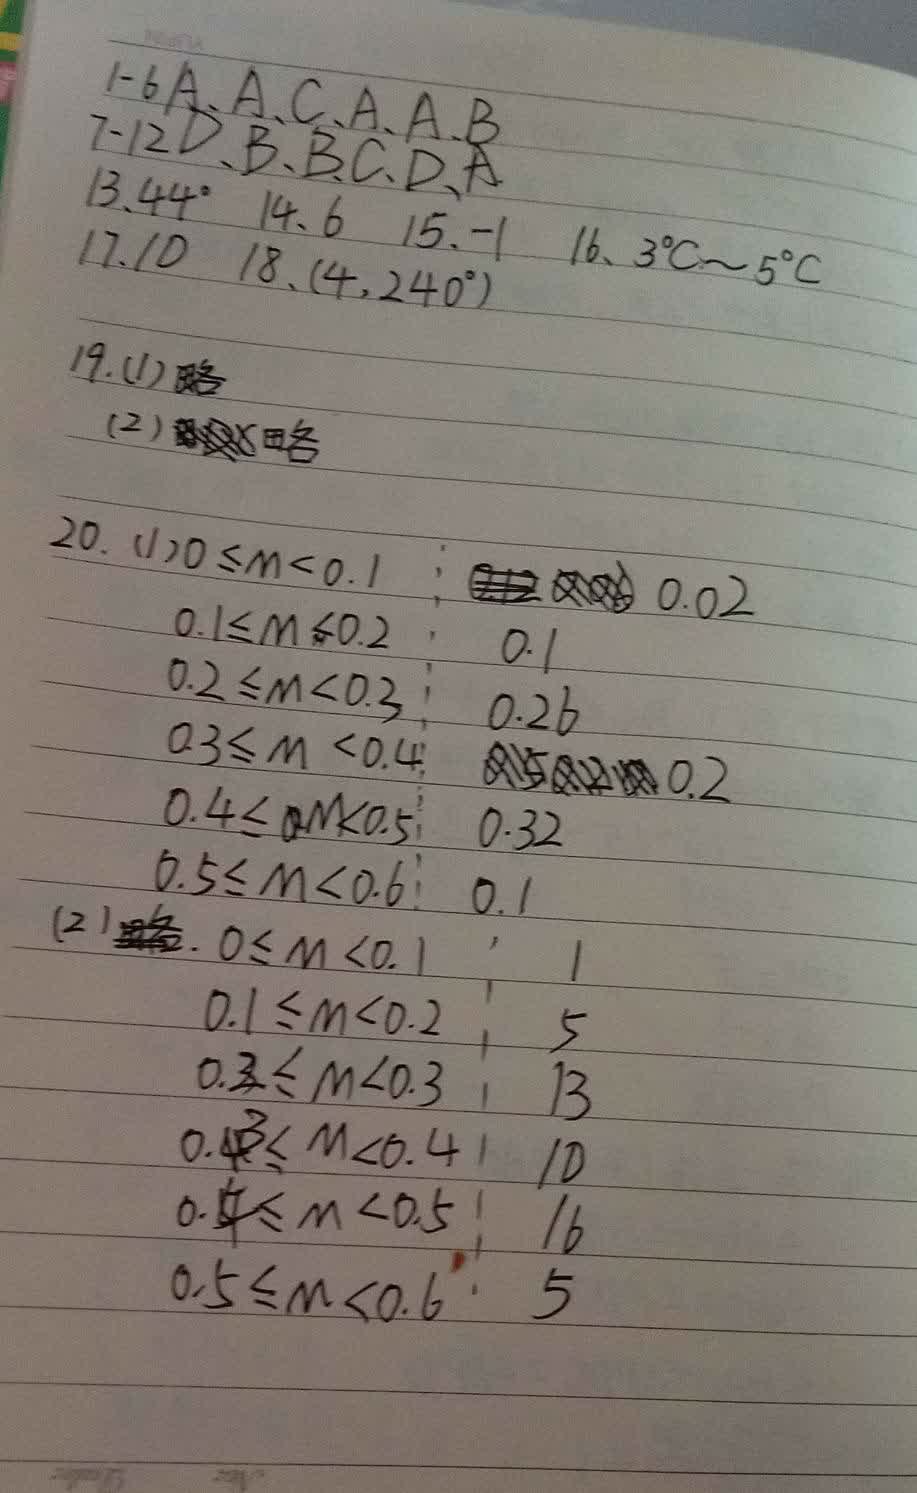 1-6 A、A、C、A、A、B
7-12 D、B、B、C、D、A
13、44° 14、6 15、-1 16、3℃～5℃
17.10 18、(4,240°)
19.(1)略
(2)略
20.(1)0≤m<0.1 0.02
0.1≤m<0.2 0.1
0.2≤m<0.3 0.26
0.3≤m<0.4 0.2
0.4≤m<0.5 0.32
0.5≤m<0.6 0.1
(2) 0≤m<0.1 1
0.1≤m<0.2 5
0.2≤m<0.3 13
0.3≤m<0.4 10
0.4≤m<0.5 16
0.5≤m<0.6 5